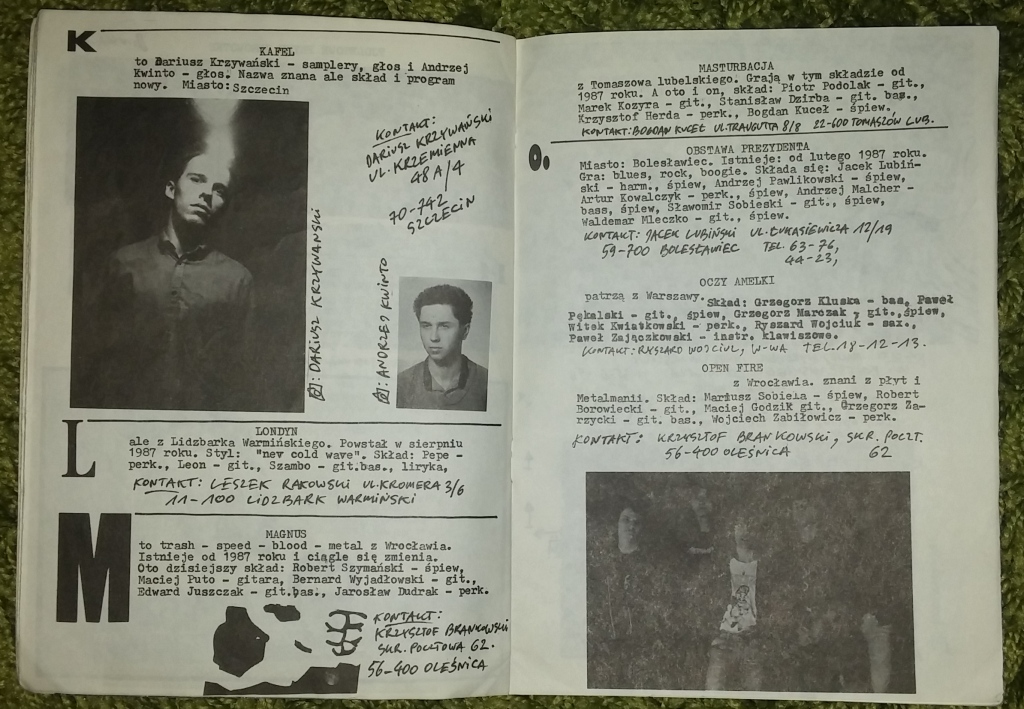 K
KAFEL
to Dariusz Krzywański - samplery, głos i Andrzej
Kwinto - głos. Nazwa znana ale skład i program
nowy. Miasto: Szczecin
KONTAKT:
DARIUSZ KRZYWAŃSKI
UL. KRZEMIENNA
48 A/4
70-742
SZCZECIN
: DARIUSZ KRZYWAŃSKI
: ANDRZEJ KWINTO
L
LONDYN
ale z Lidzbarka Warmińskiego. Powstał w sierpniu
1987 roku. Styl: "nev cold wave". Skład: Pepe -
perk., Leon - git., Szambo - git.bas., liryka,
KONTAKT: LESZEK RAKOWSKI UL. KROMERA 3/6
11-100 LIDZBARK WARMIŃSKI
M
MAGNUS
to trash - speed - blood - metal z Wrocławia.
Istnieje od 1987 roku i ciągle się zmienia.
Oto dzisiejszy skład: Robert Szymański - śpiew,
Maciej Puto - gitara, Bernard Wyjadłowski - git.,
Edward Juszczak - git.bas., Jarosław Dudrak - perk.
KONTAKT:
KRZYSZTOF BRANKOWSKI
SKR. POCZTOWA 62.
56-400 OLEŚNICA
MASTURBACJA
z Tomaszowa lubelskiego. Grają w tym składzie od
1987 roku. A oto i on, skład: Piotr Podolak - git.,
Marek Kozyra - git., Stanisław Dzirba - git. bas.,
Krzysztof Herda - perk., Bogdan Kuceł - śpiew.
KONTAKT: BOGDAN KUCEŁ UL. TRAUGUTTA 8/8 22-600 TOMASZÓW LUB.
O.
OBSTAWA PREZYDENTA
Miasto: Bolesławiec. Istnieje: od lutego 1987 roku.
Gra: blues, rock, boogie. Składa się: Jacek Lubiń-
ski - harm., śpiew, Andrzej Pawlikowski - śpiew,
Artur Kowalczyk - perk., śpiew, Andrzej Malcher-
bass, śpiew, Sławomir Sobieski - git., śpiew,
Waldemar Mleczko - git., śpiew.
KONTAKT: JACEK LUBIŃSKI UL. ŁUKASIEWICZA 12/19
59-700 BOLESŁAWIEC TEL. 63-76,
44-23,
OCZY AMELKI
patrzą z Warszawy. Skład: Grzegorz Kluska - bas, Paweł
Pękalski - git., śpiew, Grzegorz Marczak - git., śpiew,
Witek Kwiatkowski - perk., Ryszard Wojciuk - sax.,
Paweł Zajączkowski - instr. klawiszowe.
KONTAKT: RYSZARD WOJCIUK, W-WA TEL. 18-12-13.
OPEN FIRE
z Wrocławia. znani z płyt i
Metalmanii. Skład: Mariusz Sobiela - śpiew, Robert
Borowiecki - git., Maciej Godzik git., Grzegorz Za-
rzycki - git. bas., Wojciech Zabiłowicz - perk.
KONTAKT: KRZYSZTOF BRANKOWSKI, SKR. POCZT.
56-400 OLEŚNICA 62